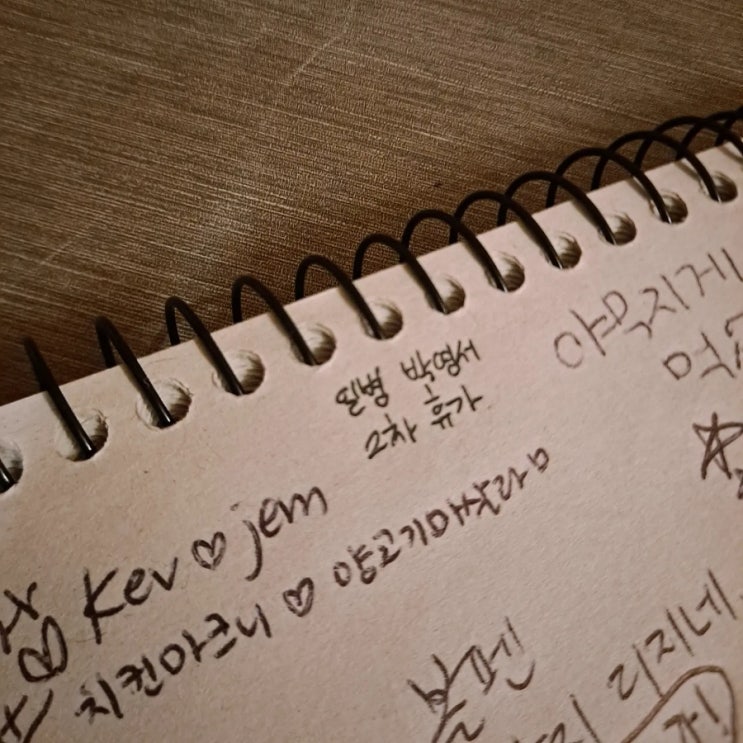 일병 박영서
2차 휴가
야무지게
Kev ♡ jem
치킨마크니 ♡ 양고기마살라
볼펜
리지네